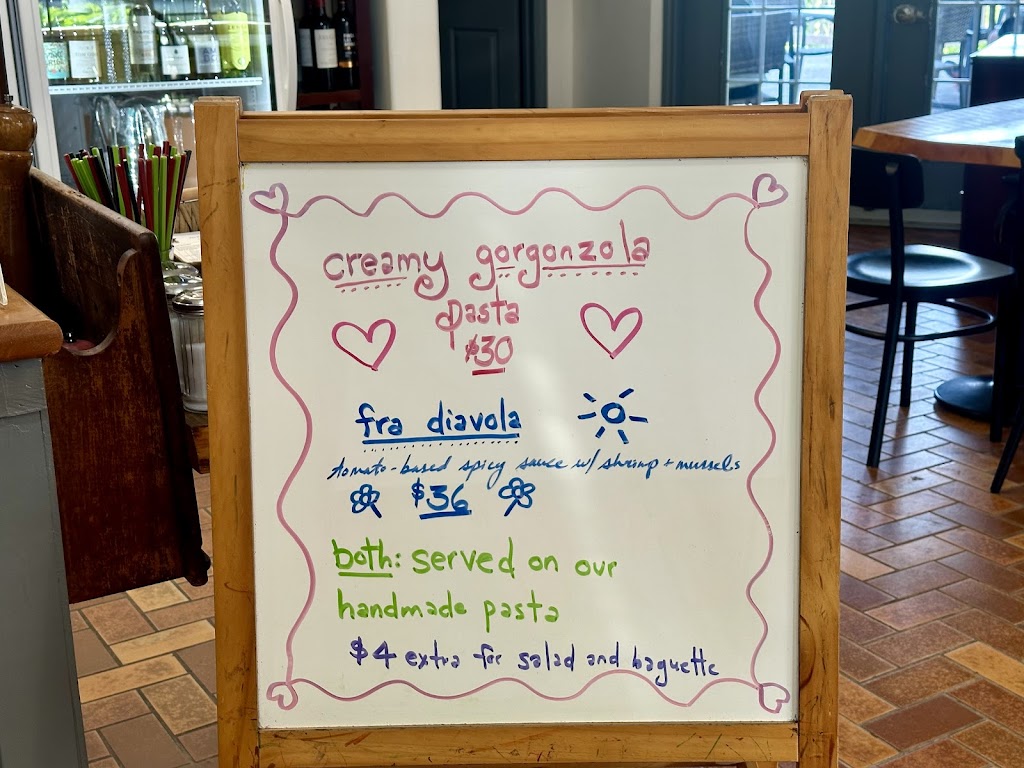 creamy gorgonzola
pasta
$30
fra diavola
tomato-based spicy sauce w/ shrimp + mussels
$36
both: served on our
handmade pasta
$4 extra for salad and baguette